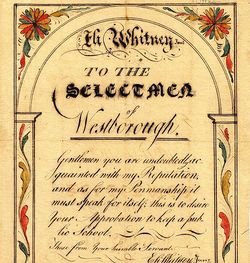 Eli Whitney
TO THE
SELECTMEN
of
Westborough.
Gentlemen you are undoubtedly ac
quainted with my Reputation,
and as for my Penmanship it
must speak for itself, this is to desire
Your Approbation to keep a pub
lic School.
These from Your humble Servant
Eli Whitney